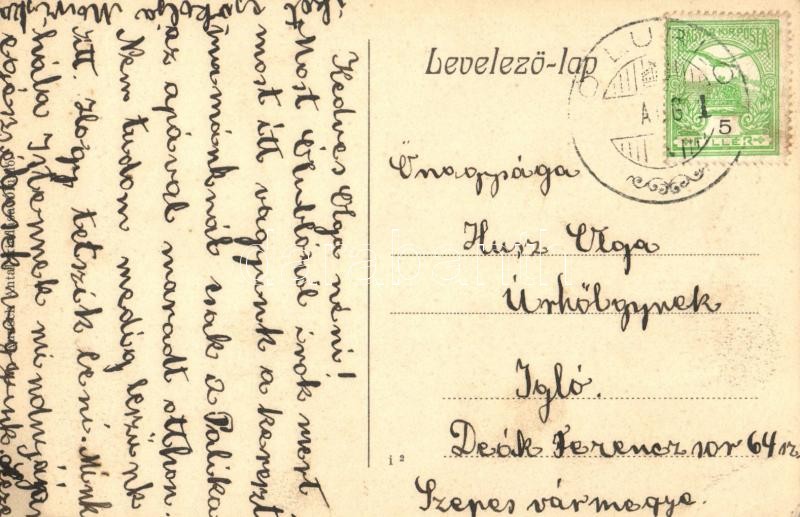 Levelező-lap
MAGYAR KIR. POSTA
5
AUG 1
Önagysága
Husz Olga
Úrhölgynek
Igló.
Deák Ferencz sor 64 sz
Szepes vármegye.
Kedves Olga néni!
Most Ólublóról írok mert
most itt vagyunk a kereszt
mamánknál csak a Palika
az apával maradt otthon.
Nem tudom meddig leszünk
itt. Hogy tetszik lenni. Mink
hála Istennek mindnyájan
csókolja
i 2